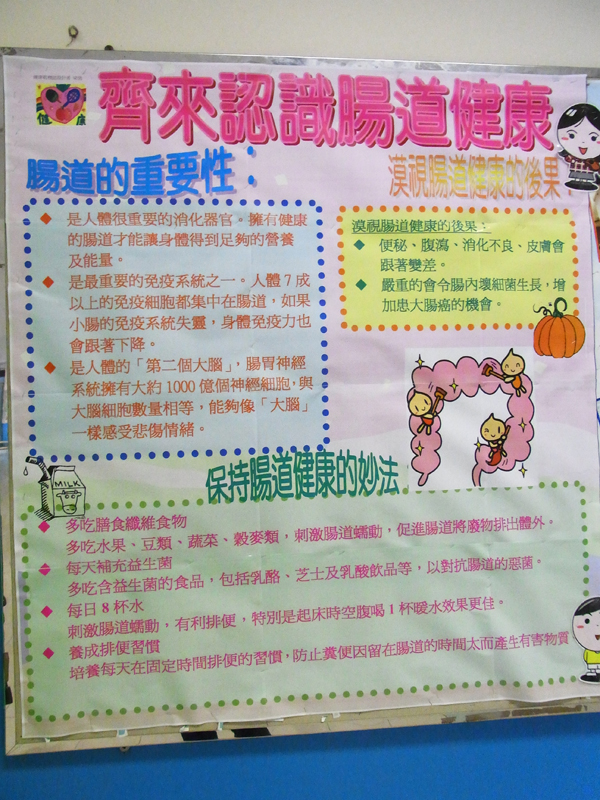 齊來認識腸道健康
健
康
腸道的重要性：
漠視腸道健康的後果：
是人體很重要的消化器官。擁有健康
的腸道才能讓身體得到足夠的營養
及能量。
是最重要的免疫系統之一。人體7成
以上的免疫細胞都集中在腸道，如果
小腸的免疫系統失靈，身體免疫力也
會跟著下降。
是人體的「第二個大腦」，腸胃神經
系統擁有大約1000億個神經細胞，與
大腦細胞數量相等，能夠像「大腦」
一樣感受悲傷情緒。
漠視腸道健康的後果：
便秘、腹瀉、消化不良、皮膚會
跟著變差。
嚴重的會令腸內壞細菌生長，增
加患大腸癌的機會。
MILK
保持腸道健康的妙法
多吃膳食纖維食物
多吃水果、豆類、蔬菜、穀麥類，刺激腸道蠕動，促進腸道將廢物排出體外。
每天補充益生菌
多吃含益生菌的食品，包括乳酪、芝士及乳酸飲品等，以對抗腸道的惡菌。
每日8杯水
刺激腸道蠕動，有利排便，特別是起床時空腹喝1杯暖水效果更佳。
養成排便習慣
培養每天在固定時間排便的習慣，防止糞便因留在腸道的時間太而產生有害物質